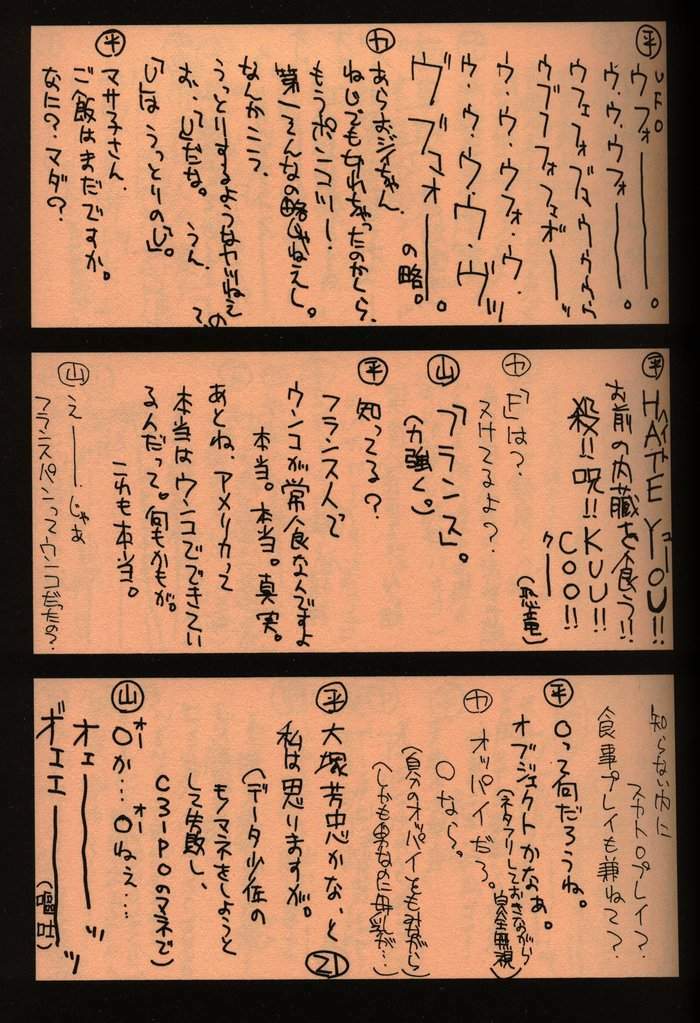 平
UFO
ウフォーーー。
ウ・ウ・ウフォーーー。
ウフェフォブマウウウウ
ウブブフォフェボーーッ
ウ・ウ・ウフォ・ウ・
ウ・ウ・ウ・ヴ・ヴッ
ヴブマォーーー。
の略。
カ
あらおジイちゃん、
ねじでも切れちゃったのかしら、
もうポンコツー!
第一そんなの略じゃねえし。
なんかこう、
うっとりするようなヤツねぇの
お、「U」だな。うん、で、
「U」は うっとりの「U」。
平
マサ子さん、
ご飯はまだですか。
なに?マダ?
平
HATE YOU!!
ヘイト ユー
お前の内蔵を食う!!
殺!!呪!!KUU!!
COO!!
クー
(恐竜)
カ
「F」は?
ヌけてるよ?
山
「フランス」。
(力強く。)
平
知ってる?
フランス人て
ウンコが常食なんですよ
本当。本当。真実。
あとね、アメリカって
本当はウンコでできてい
るんだって。何もかもが。
これも本当。
山
えーー。じゃあ
フランスパンってウンコだったの?
知らない内に
スカトロプレイ?
食事プレイも兼ねて?
平
Oって何だろうね。
オブジェクトかなぁ。
(ネタフリしておきながら
完全無視)
カ
オッパイだろ。
Oなら。
(自分のオッパイをもみながら)
(しかも男なのに母乳が…)
平
大塚芳忠かな、と
私は思りますが。
(データ少佐の
モノマネをしようと
して失敗し、
C3-POのマネで)
21
山
Oか…Oねぇ…
オー オー
オェーーーッ
ギェエーーーッ
(嘔吐)